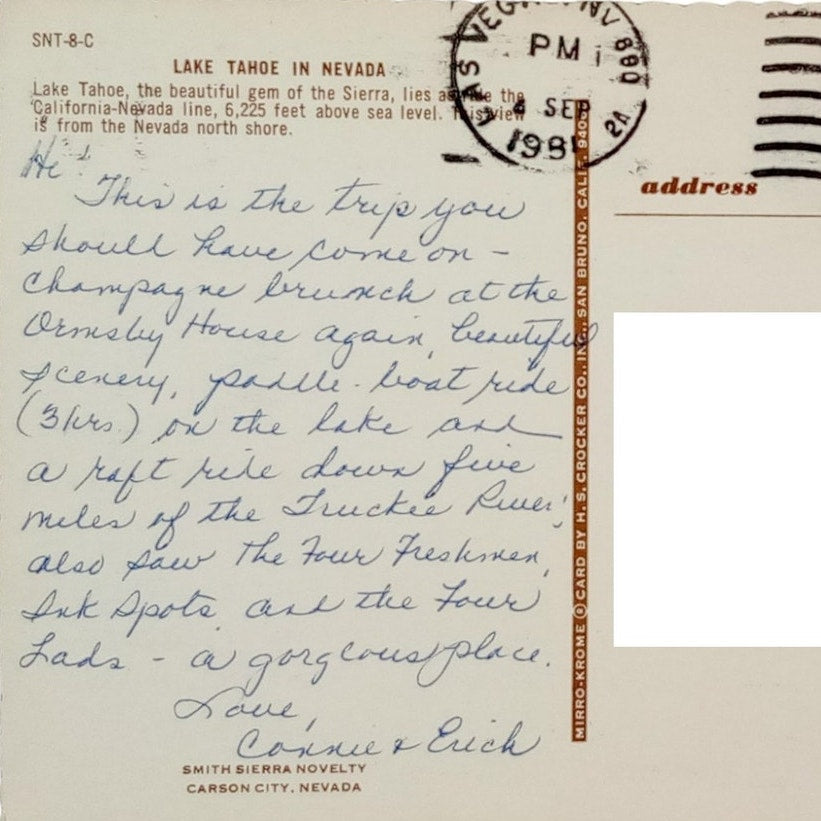 SNT-8-C
LAKE TAHOE IN NEVADA
Lake Tahoe, the beautiful gem of the Sierra, lies astride the
California-Nevada line, 6,225 feet above sea level. This view
is from the Nevada north shore.
LAS VEGAS, NV 890
PM
SEP
1981
2A
address
Hi!
This is the trip you
should have come on -
champagne brunch at the
Ormsby House again, beautiful
scenery, paddle-boat ride
(3 hrs.) on the lake and
a raft ride down five
miles of the Truckee River;
also saw the Four Freshmen,
Ink Spots and the Four
Lads - a gorgeous place.
Love,
Connie & Erich
SMITH SIERRA NOVELTY
CARSON CITY, NEVADA
MIRRO-KROME ® CARD BY H.S. CROCKER CO., INC., SAN BRUNO, CALIF. 9406